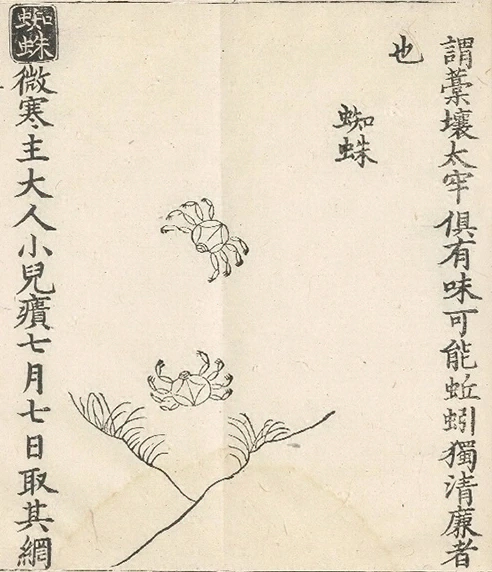 謂藁壤太牢俱有味可能蚯蚓獨清廉者
也
蜘蛛
蜘蛛
微寒主大人小兒㿉七月七日取其網